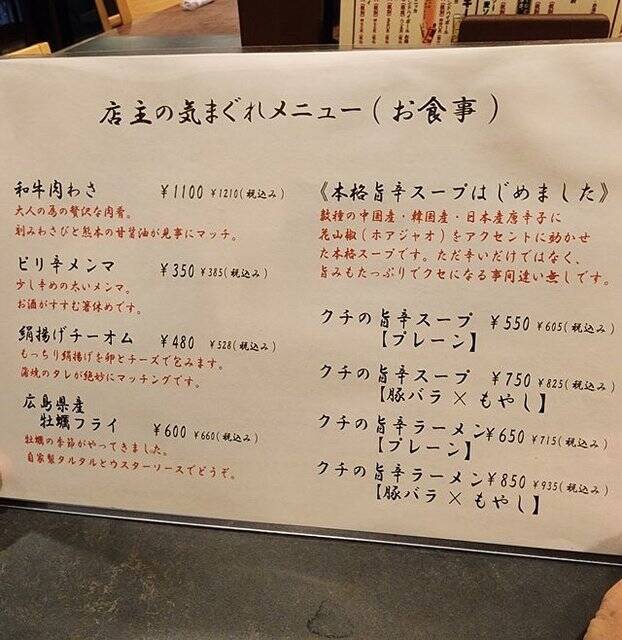 店主の気まぐれメニュー(お食事)
和牛肉わさ ¥1100 ¥1210(税込み)
大人の為の贅沢な肉肴。
刻みわさびと熊本の甘醤油が見事にマッチ。
ピリ辛メンマ ¥350 ¥385(税込み)
少し辛めの太いメンマ。
お酒がすすむ箸休めです。
絹揚げチーオム ¥480 ¥528(税込み)
もっちり絹揚げを卵とチーズで包みます。
蒲焼のタレが絶妙にマッチングです。
広島県産
牡蠣フライ ¥600 ¥660(税込み)
牡蠣の季節がやってきました。
自家製タルタルとウスターソースでどうぞ。
《本格旨辛スープはじめました》
数種の中国産・韓国産・日本産唐辛子に
花山椒(ホアジャオ)をアクセントに効かせ
た本格スープです。ただ辛いだけではなく、
旨みもたっぷりでクセになる事間違い無しです。
クチの旨辛スープ ¥550 ¥605(税込み)
【プレーン】
クチの旨辛スープ ¥750 ¥825(税込み)
【豚バラ×もやし】
クチの旨辛ラーメン¥650 ¥715(税込み)
【プレーン】
クチの旨辛ラーメン¥850 ¥935(税込み)
【豚バラ×もやし】